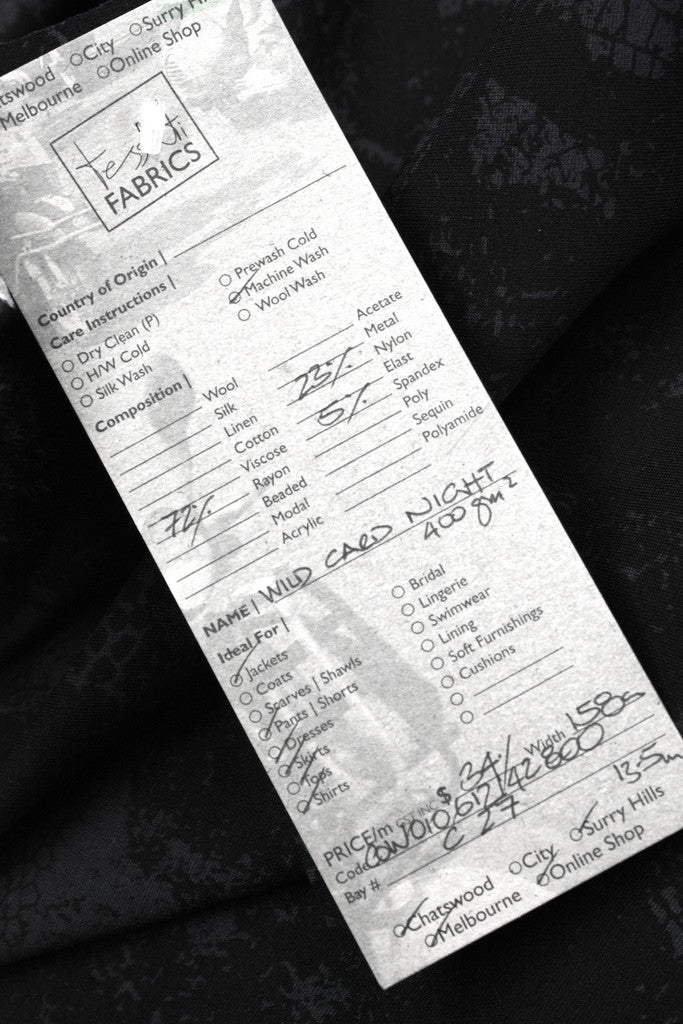 atswood City Surry Hi
Melbourne Online Shop
FABRICS
Country of Origin |
Care Instructions |
Dry Clean (P) Prewash Cold
H/W Cold Machine Wash
Silk Wash Wool Wash
Composition |
Wool Acetate
Silk Metal
Linen 23% Nylon
Cotton 5% Elast
Viscose Spandex
72% Rayon Poly
Beaded Sequin
Modal Polyamide
Acrylic
NAME | WILD CARD NIGHT
400 gm²
Ideal For |
Jackets Bridal
Coats Lingerie
Scarves | Shawls Swimwear
Pants | Shorts Lining
Dresses Soft Furnishings
Skirts Cushions
Tops
Shirts
PRICE/m GST INC $ 34/ Width 158c
Code
Bay # C 27 13.5m
Chatswood City Surry Hills
Melbourne Online Shop